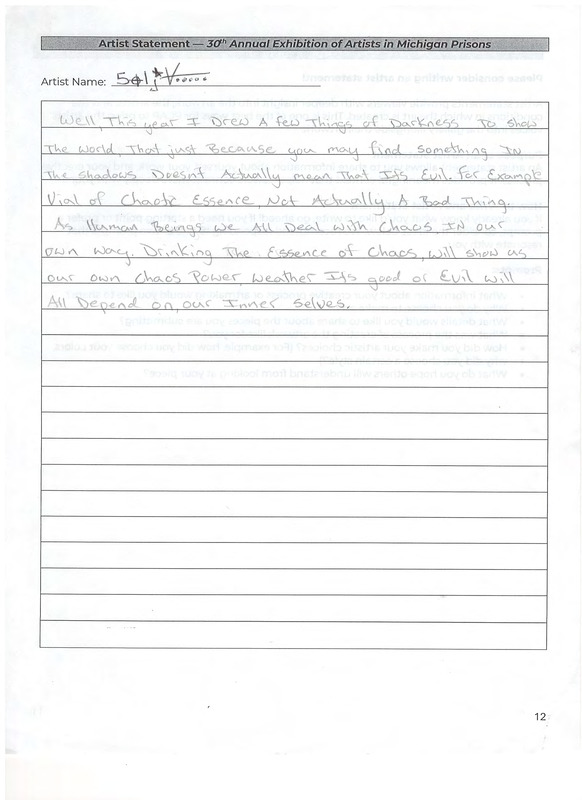 Artist Statement — 30th Annual Exhibition of Artists in Michigan Prisons
Artist Name:
Well, This year I Drew A few Things of Darkness To show
The world, That just Because you may find something IN
The shadows Doesn't Actually mean That It's Evil. For Example
Vial of Chaotic Essence, Not Actually A Bad Thing.
As Human Beings we All Deal with Chaos, IN our
own way. Drinking The Essence of Chaos, will show us
our own Chaos Power, weather It's good or Evil will
All Depend on, our Inner selves.
12